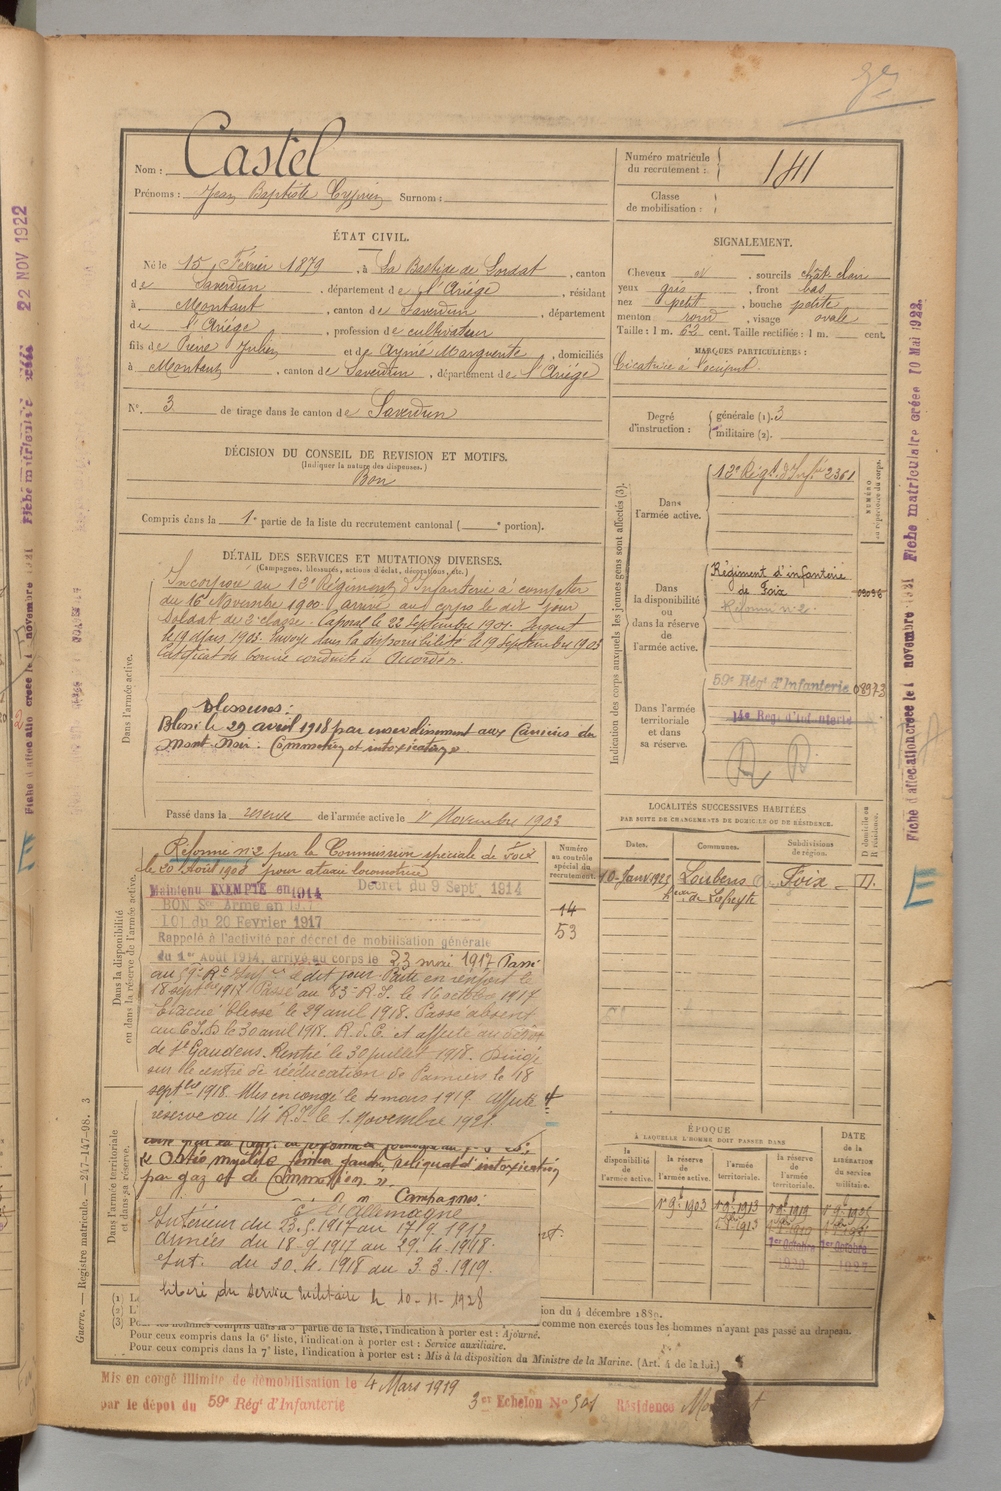 Nom : Castel
Prénoms : Jean Baptiste Surnom :
Numéro matricule du recrutement : 141
Classe de mobilisation :
ÉTAT CIVIL.
Né le 15 Février 1879, à La Bastide de Lordat, canton
de Saverdun, département de l'Ariège, résidant
à Montaut, canton de Saverdun, département
de l'Ariège, profession de cultivateur
fils de Pierre Julien et de Aymé Marguerite, domiciliés
à Montaut, canton de Saverdun, département de l'Ariège
N° 3 de tirage dans le canton de Saverdun
SIGNALEMENT.
Cheveux et, sourcils chât. clair
yeux gris, front bas
nez petit, bouche petite
menton rond, visage ovale
Taille : 1 m. 62 cent. Taille rectifiée : 1 m. cent.
MARQUES PARTICULIÈRES :
Cicatrice à l'occiput.
Degré d'instruction : générale (1). 3
militaire (2).
DÉCISION DU CONSEIL DE REVISION ET MOTIFS.
(Indiquer la nature des dispenses.)
Bon
Compris dans la 1e partie de la liste du recrutement cantonal ( e portion).
DÉTAIL DES SERVICES ET MUTATIONS DIVERSES.
(Campagnes, blessures, actions d'éclat, décorations, etc.)
Dans l'armée active.
Incorporé au 13e Régiment d'Infanterie à compter
du 16 Novembre 1900 arrivé au corps le dit jour
soldat de 2e classe. Caporal le 22 septembre 1901. Sergent
le 19 Mars 1903. Envoyé dans la disponibilité le 19 Septembre 1903
Certificat de bonne conduite accordé.
Blessures :
Blessé le 29 avril 1918 par ensevelissement aux Carrières du
Mont Noir. Commotion et intoxication.
Passé dans la réserve de l'armée active le 1er Novembre 1903
Dans la disponibilité ou dans la réserve de l'armée active.
Réformé n° 2 par la Commission spéciale de Foix
le 20 Août 1908 pour ataxie locomotrice
Maintenu EXEMPTÉ en 1914 Décret du 9 Sept 1914
BON Sce Armé en 1917
LOI du 20 Fevrier 1917
Rappelé à l'activité par décret de mobilisation générale
du 1er Août 1914, arrivé au corps le 23 mai 1917 Passé
au 59e Rt Infie le dit jour. Parti en renfort le
18 septbre 1917 Passé au 83e R.I. le 16 octobre 1917
Evacué blessé le 29 avril 1918. Passé absent
au C.I.D le 30 avril 1918. R.d.C. et affecté au dépôt
de St Gaudens. Rentré le 30 juillet 1918. Dirigé
sur le centre de rééducation de Pamiers le 18
septbre 1918. Mis en congé le 4 mars 1919. Affecté
réserve au 14e R.I. le 1. Novembre 1921.
Dans l'armée territoriale et dans sa réserve.
reliquat d'intoxication
par gaz et de Commotion ».
Campagnes :
Cre l'Allemagne
Intérieur du 23.5.1917 au 17.9.1917
Armées du 18-9.1917 au 29.4.1918.
Int. du 30.4.1918 au 3.3.1919.
libéré du service militaire le 10-11-1928
Indication des corps auxquels les jeunes gens sont affectés (3).
NUMÉRO au répertoire du corps.
Dans l'armée active. 13e Régt d'Infie 2361
Dans la disponibilité ou dans la réserve de l'armée active.
Régiment d'infanterie de Foix 03098
Réformé n° 2
Dans l'armée territoriale et dans sa réserve.
59e Régt d'Infanterie 08973
14e Régt d'Infanterie
LOCALITÉS SUCCESSIVES HABITÉES
PAR SUITE DE CHANGEMENTS DE DOMICILE OU DE RÉSIDENCE.
Numéro au contrôle spécial du recrutement.
Dates. Communes. Subdivisions de région. D domicile ou R résidence.
10 Janv 1925 Loubens Foix D.
14
53
ÉPOQUE
À LAQUELLE L'HOMME DOIT PASSER DANS
DATE de la LIBÉRATION du service militaire.
la disponibilité de l'armée active.
la réserve de l'armée active.
l'armée territoriale.
la réserve de l'armée territoriale.
1er 9bre 1903 1er 9bre 1913 1er 9bre 1919 1er 9bre 1925
1er Octobre 1er Octobre
ion du 4 décembre 1889.
(3) Pour les hommes compris dans la 5e partie de la liste, l'indication à porter est : Ajourné.
comme non exercés tous les hommes n'ayant pas passé au drapeau.
Pour ceux compris dans la 6e liste, l'indication à porter est : Service auxiliaire.
Pour ceux compris dans la 7e liste, l'indication à porter est : Mis à la disposition du Ministre de la Marine. (Art. 4 de la loi.)
Mis en congé illimité de démobilisation le 4 Mars 1919
par le dépôt du 59e Régt d'Infanterie 3er Echelon No 501 Résidence
Guerre. — Registre matricule. — 247-147-98. 3
22 NOV 1922
Fiche matriculaire créée 10 Mai 1922.
Fiche d'affectation créée le 1 novembre 1921